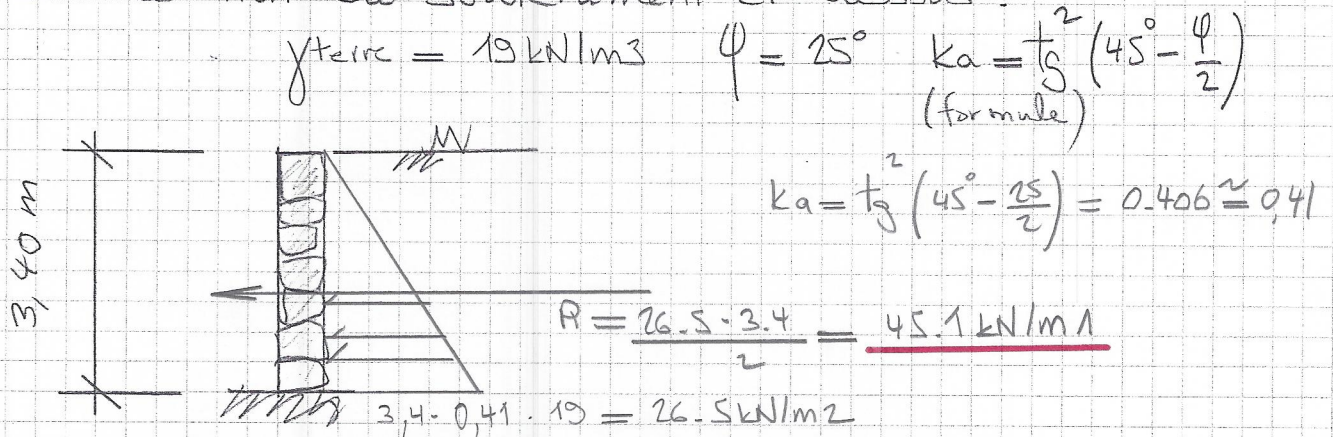 γterre = 19 kN/m3 φ = 25° ka = tg² (45° - φ/2)
(formule)
ka = tg² (45° - 25/2) = 0.406 ≅ 0,41
3,40 m
R = 26.5 · 3.4 / 2 = 45.1 kN/m1
3,4 · 0,41 · 19 = 26.5 kN/m2